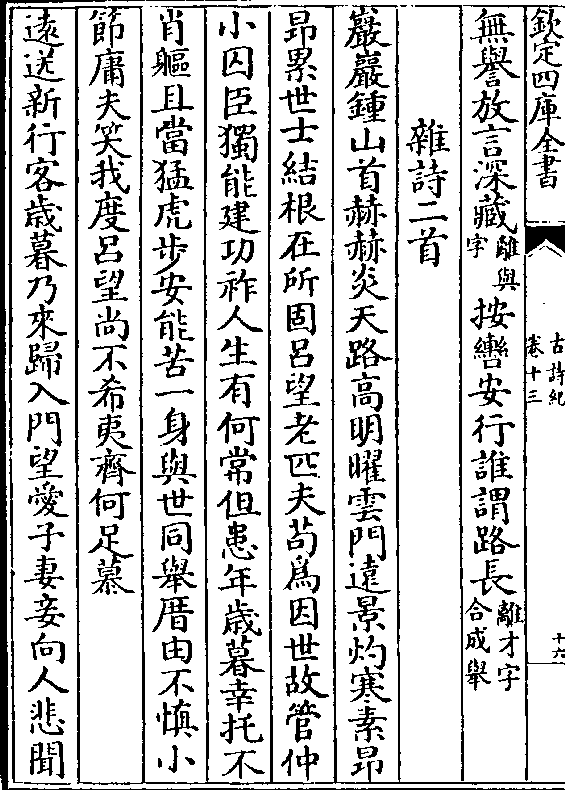 欽定四庫全書
古詩紀
卷十三
十六
無譽放言深藏離與字按轡安行誰謂路長離才字合成舉
雜詩二首
巖巖鍾山首赫赫炎天路高明曜雲門遠景灼寒素昂
昂累世士結根在所固呂望老匹夫苟為因世故管仲
小囚臣獨能建功祚人生有何常但患年歲暮幸托不
肖軀且當猛虎步安能苦一身與世同舉厝由不慎小
節庸夫笑我度呂望尚不希夷齊何足慕
遠送新行客歲暮乃來歸入門望愛子妻妾向人悲聞